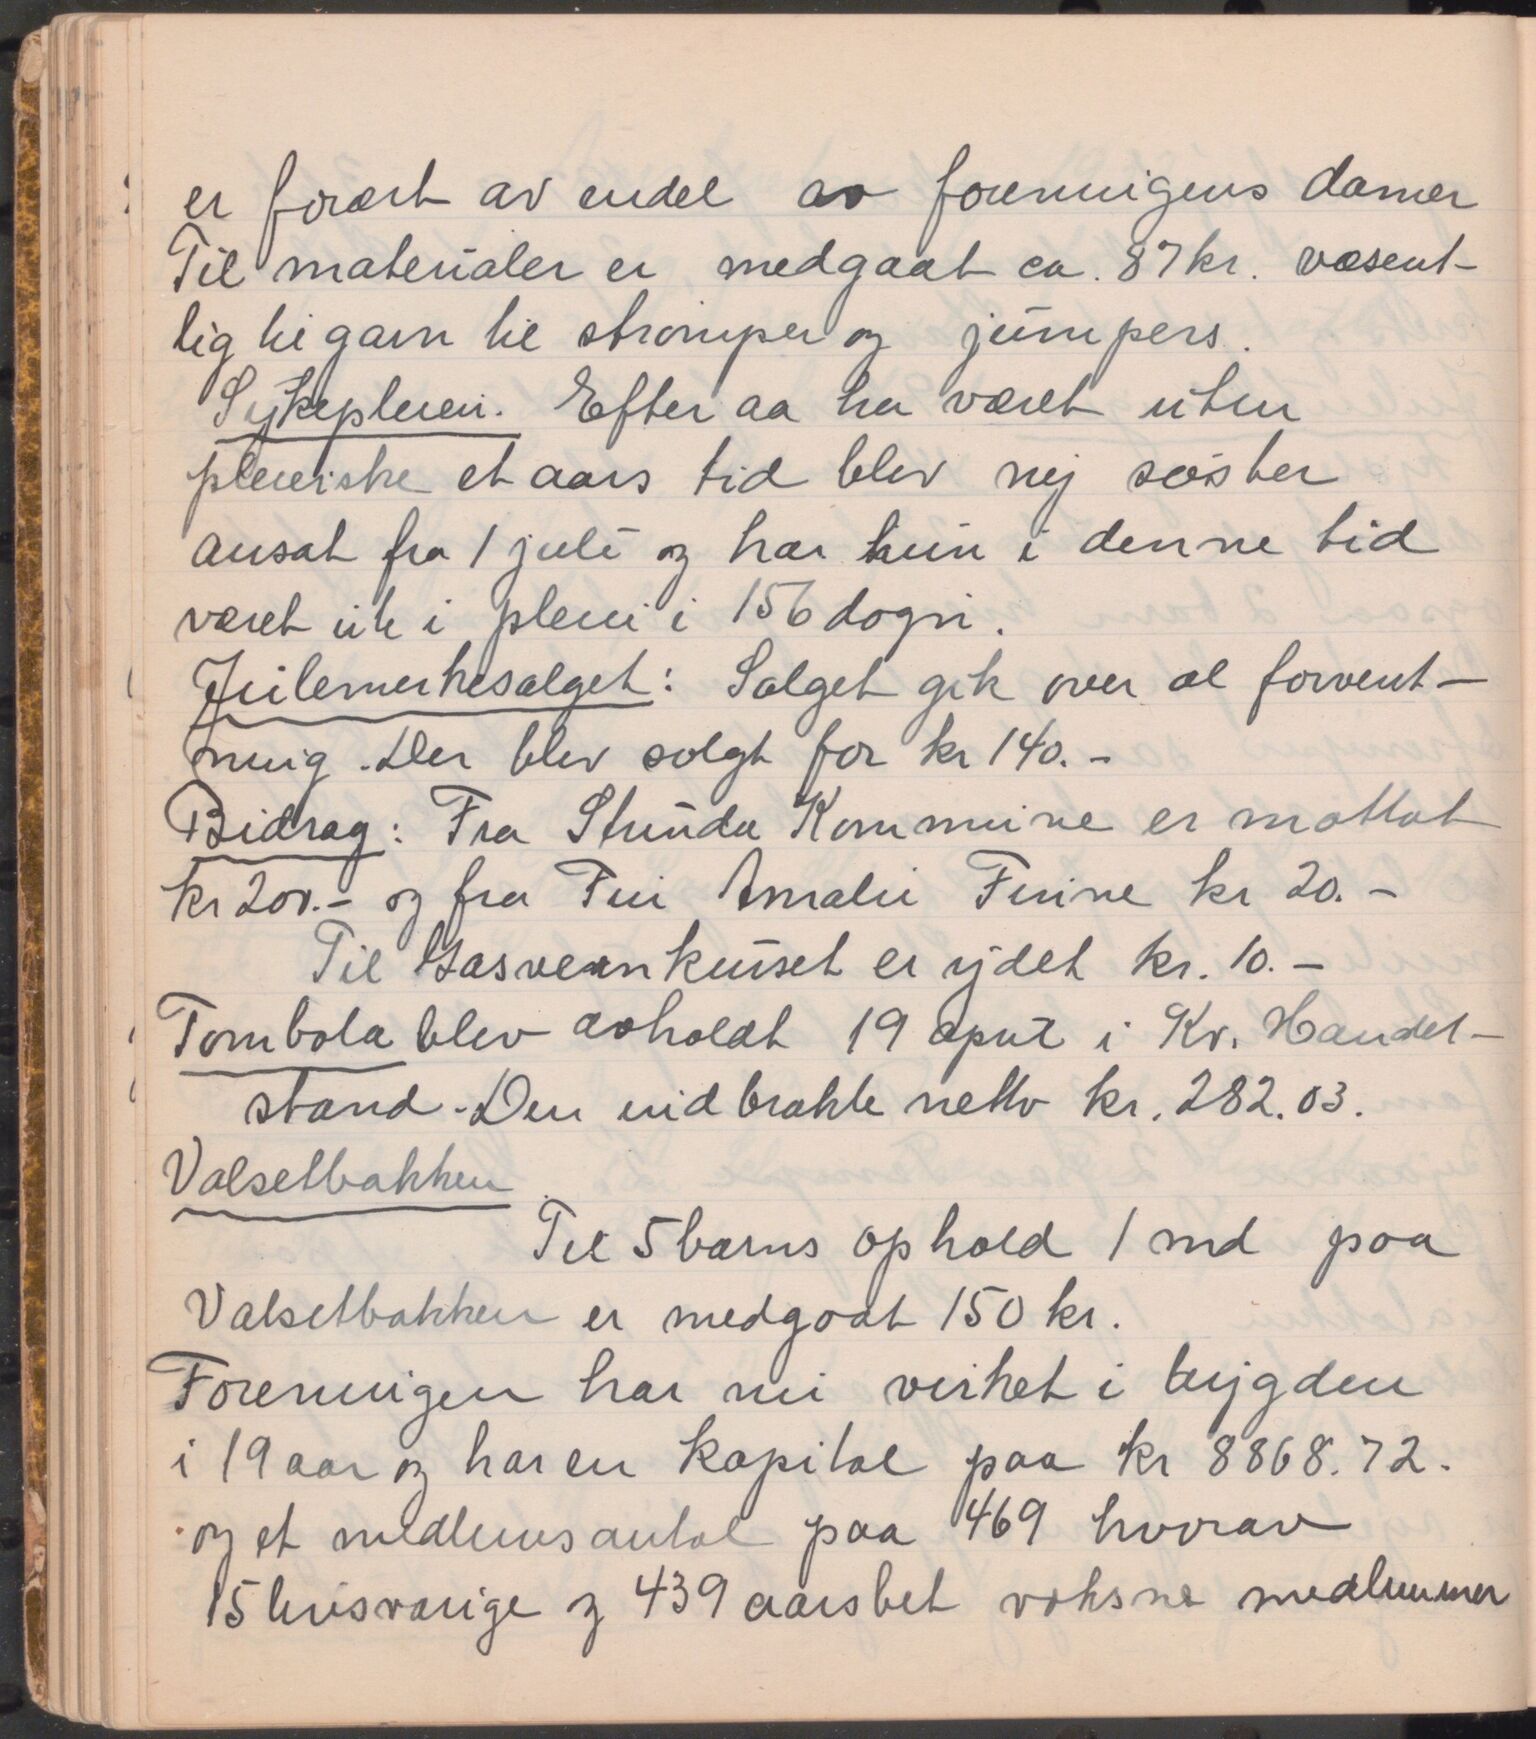 er forært av endel av foreningens damer
Til materialer er medgaat ca. 87 kr. væsent-
lig til garn til strømper og jumpers.
Sykepleien. Efter aa ha været uten
pleierske et aars tid blev ny søster
ansat fra 1 juli og har hun i denne tid
været ute i pleie i 156 døgn.
Julemerkesalget: Salget gik over al forvent-
ning. Der blev solgt for kr 140.-
Bidrag: Fra Strinda Kommune er mottat
kr 200.- og fra Frk Amalie Finne kr 20.-
Til Gasvernkurset er ydet kr. 10.-
Tombola blev avholdt 19 april i Kr. Handel-
stand. Den indbrakte netto kr. 282.03.
Valsetbakken
Til 5 barns ophold 1 md paa
Valsetbakken er medgaat 150 kr.
Foreningen har nu virket i bygden
i 19 aar og har en kapital paa kr 8868.72.
og et medlemsantal paa 469 hvorav
15 livsvarige og 439 aarsbet voksne medlemmer